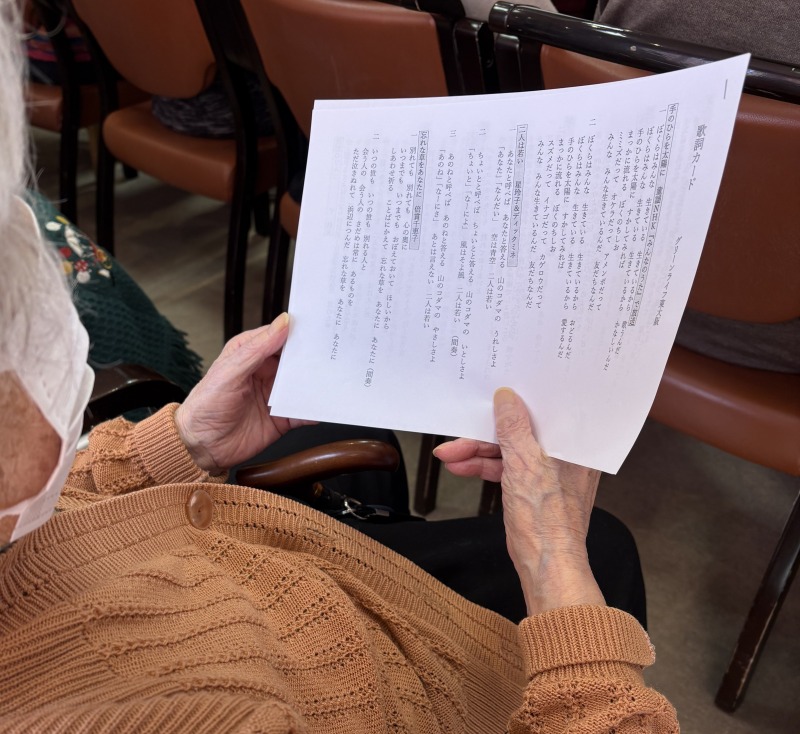 歌詞カード
グリーンライフ東大阪
手のひらを太陽に 童謡NHK「みんなのうた」で放送
一
ぼくらはみんな 生きている 生きているから 歌うんだ
ぼくらはみんな 生きている 生きているから かなしいんだ
手のひらを太陽に すかしてみれば
まっかに流れる ぼくのちしお
ミミズだって オケラだって アメンボだって
みんな みんな生きているんだ 友だちなんだ
二
ぼくらはみんな 生きている 生きているから おどるんだ
ぼくらはみんな 生きている 生きているから 愛するんだ
手のひらを太陽に すかしてみれば
まっかに流れる ぼくのちしお
スズメだって イナゴだって カゲロウだって
みんな みんな生きているんだ 友だちなんだ
二人は若い 星玲子&ディックミネ
一
あなたと呼べば あなたと答える 山のコダマの うれしさよ
「あなた」「なんだい」 空は青空 二人は若い
二
ちょいとと呼べば ちょいとと答える 山のコダマの いとしさよ
「ちょいと」「なーによ」 風はそよ風 二人は若い (間奏)
三
あのねと呼べば あのねと答える 山のコダマの やさしさよ
「あのね」「なーにさ」 あとは言えない 二人は若い
忘れな草をあなたに 倍賞千恵子
一
別れても 別れても 心の奥に
いつまでも いつまでも おぼえておいて ほしいから
しあわせ祈る ことばにかえて 忘れな草を あなたに あなたに (間奏)
二
いつの世も いつの世も 別れる人と
会う人の 会う人の さだめは常に あるものを
ただ泣きぬれて 浜辺につんだ 忘れな草を あなたに あなたに